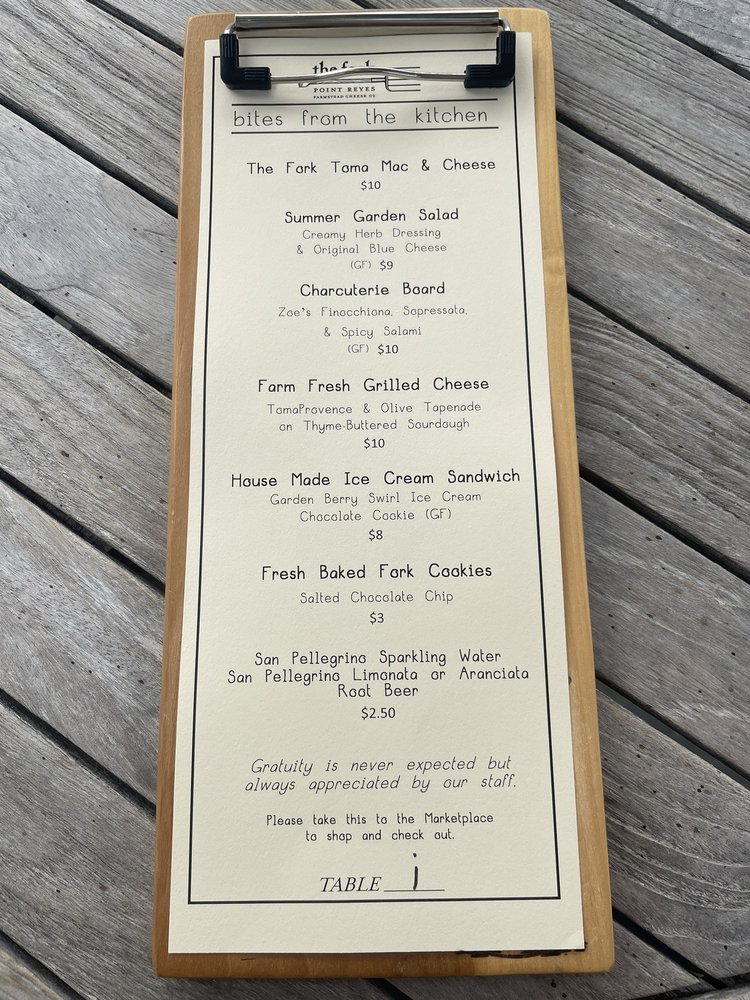 POINT REYES
FARMSTEAD CHEESE CO.
bites from the kitchen
The Fork Toma Mac & Cheese
$10
Summer Garden Salad
Creamy Herb Dressing
& Original Blue Cheese
(GF) $9
Charcuterie Board
Zoe's Finocchiona, Sopressata,
& Spicy Salami
(GF) $10
Farm Fresh Grilled Cheese
TomaProvence & Olive Tapenade
on Thyme-Buttered Sourdough
$10
House Made Ice Cream Sandwich
Garden Berry Swirl Ice Cream
Chocolate Cookie (GF)
$8
Fresh Baked Fork Cookies
Salted Chocolate Chip
$3
San Pellegrino Sparkling Water
San Pellegrino Limonata or Aranciata
Root Beer
$2.50
Gratuity is never expected but
always appreciated by our staff.
Please take this to the Marketplace
to shop and check out.
TABLE